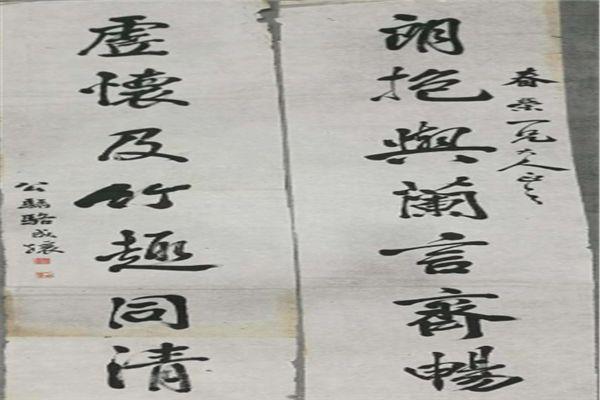 春棠一兄大人正之
朗抱與蘭言齊暢
虛懷及竹趣同清
公驌駱成驤